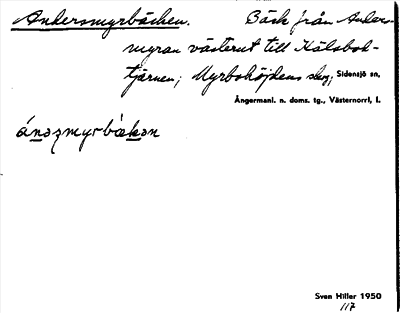 Andersmyrbäcken. Bäck från Anders-
myran västerut till Kälsbok-
tjärnen; Myrbohöjdens skog; Sidensjö sn,
Ångermanl. n. doms. tg., Västernorrl, l.
ánəzmyrbækən
Sven Hiller 1950
117